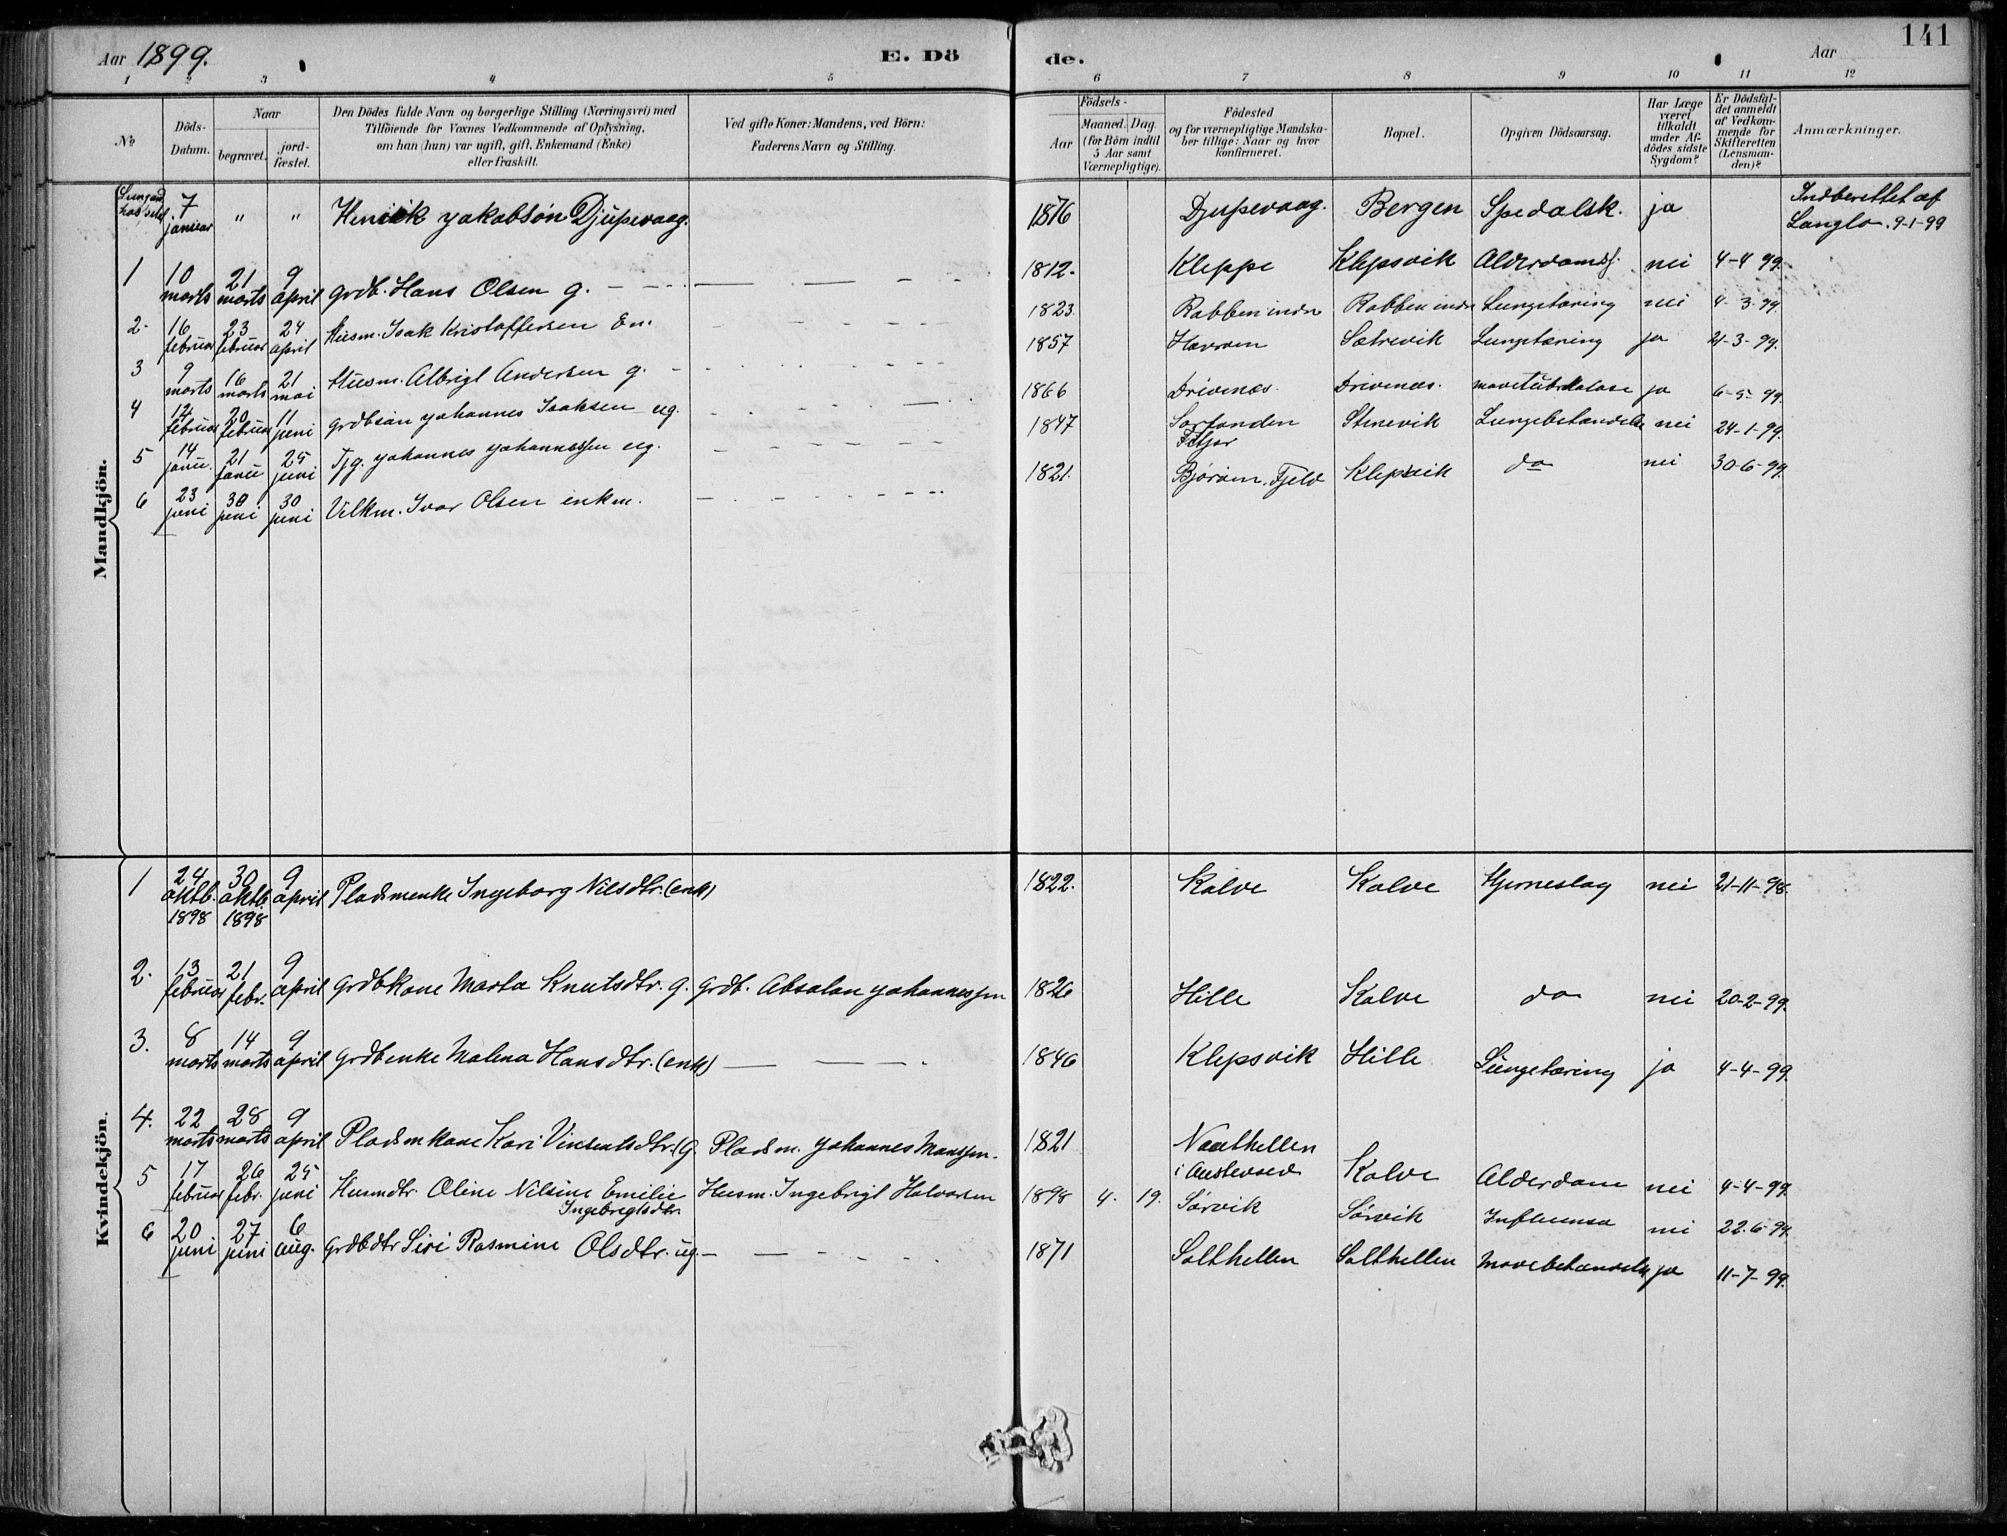 141
Aar 1899. E. Dö de. Aar
1 2 3 4 5 6 7 8 9 10 11 12
No Döds-Datum. Naar begravet. jord-fæstet. Den Dödes fulde Navn og borgerlige Stilling (Næringsvei) med Tilföiende for Voxnes Vedkommende af Oplysning, om han (hun) var ugift, gift, Enkemand (Enke) eller fraskilt. Ved gifte Koner: Mandens, ved Börn: Faderens Navn og Stilling. Födsels- Aar Maaned. Dag. (for Börn indtil 5 Aar samt Værnepligtige). Födested og for værnepligtige Mandska-ber tillige: Naar og hvor konfirmeret. Bopæl. Opgiven Dödsaarsag. Har Læge været tilkaldt under Af-dödes sidste Sygdom? Er Dödsfal-det anmeldt af Vedkom-mende for Skifteretten (Lensman-den)? Anmærkninger.
Mandkjön.
7 januar " " Henrik Jakobsön Djupevaag. 1876 Djupevaag. Bergen Spedalsk. ja Indberettet af Langlo. 9-1-99
1 10 marts 21 marts 9 april grdb. Hans Olsen g. 1812. Kleppe Klepsvik Alderdomsf. nei 4-4 99.
2. 16 februar 23 februar 24 april Husm. Isak Kristoffersen En. 1823 Rabben indr Rabben indr Lungetæring nei 4-3-99.
3 9 marts 16 marts 21 mai Husm. Albrigt Andersen g. 1857 Sætrevik Lungetæring ja 21-3-99.
4 12 februar 20 februar 11 juni grdbsøn Johannes Isaksen ug. 1866 Drivenæs. Drivenæs. ja 6-5-99.
5 14 janu. 21 janu 25 juni Tjg. Johannes Johannessen ug. 1847 Sørtanden Fitjar Stenevik Lungebetændelse nei 24-1-99.
6 23 juni 30 juni 30 juni Vilkm. Ivar Olsen enkm. 1821. Klepsvik do nei 30-6-99.
Kvindekjön.
1 24 oktb. 1898 30 oktb. 1898 9 april Pladsmenke Ingeborg Nilsdtr. (enk) 1822. Kalve Kalve Hjerneslag nei 21-11-98.
2. 13 februar 21 febr. 9 april Grdbkone Marta Knutsdtr. g. grdb. Absalon Johannessen 1826 Hille Kalve do nei 20-2-99.
3. 8 marts 14 marts 9 april Grdbenke Malena Hansdtr. (enk) 1846 Klepsvik Hille Lungetæring ja 4-4-99.
4. 22 marts 28 marts 9 april Pladsmkone Kari Vinsentsdtr. (g. Pladsm. Johannes Monssen. 1821 i Austevold Kalve Alderdom nei 4-4-99.
5 17 februar 26 febr. 25 juni Husmdtr. Oline Nilsine Emilie Ingebrigtsdtr. Husm. Ingebrigt Halvorsen 1898 4. 19. Sørvik Sørvik Influensa nei 22-6-99.
6 20 juni 27 juni 6 aug. Grdbdtr Siri Rasmine Olsdtr. ug 1871 Salthellen Salthellen Mavebetændelse ja 11-7-99.